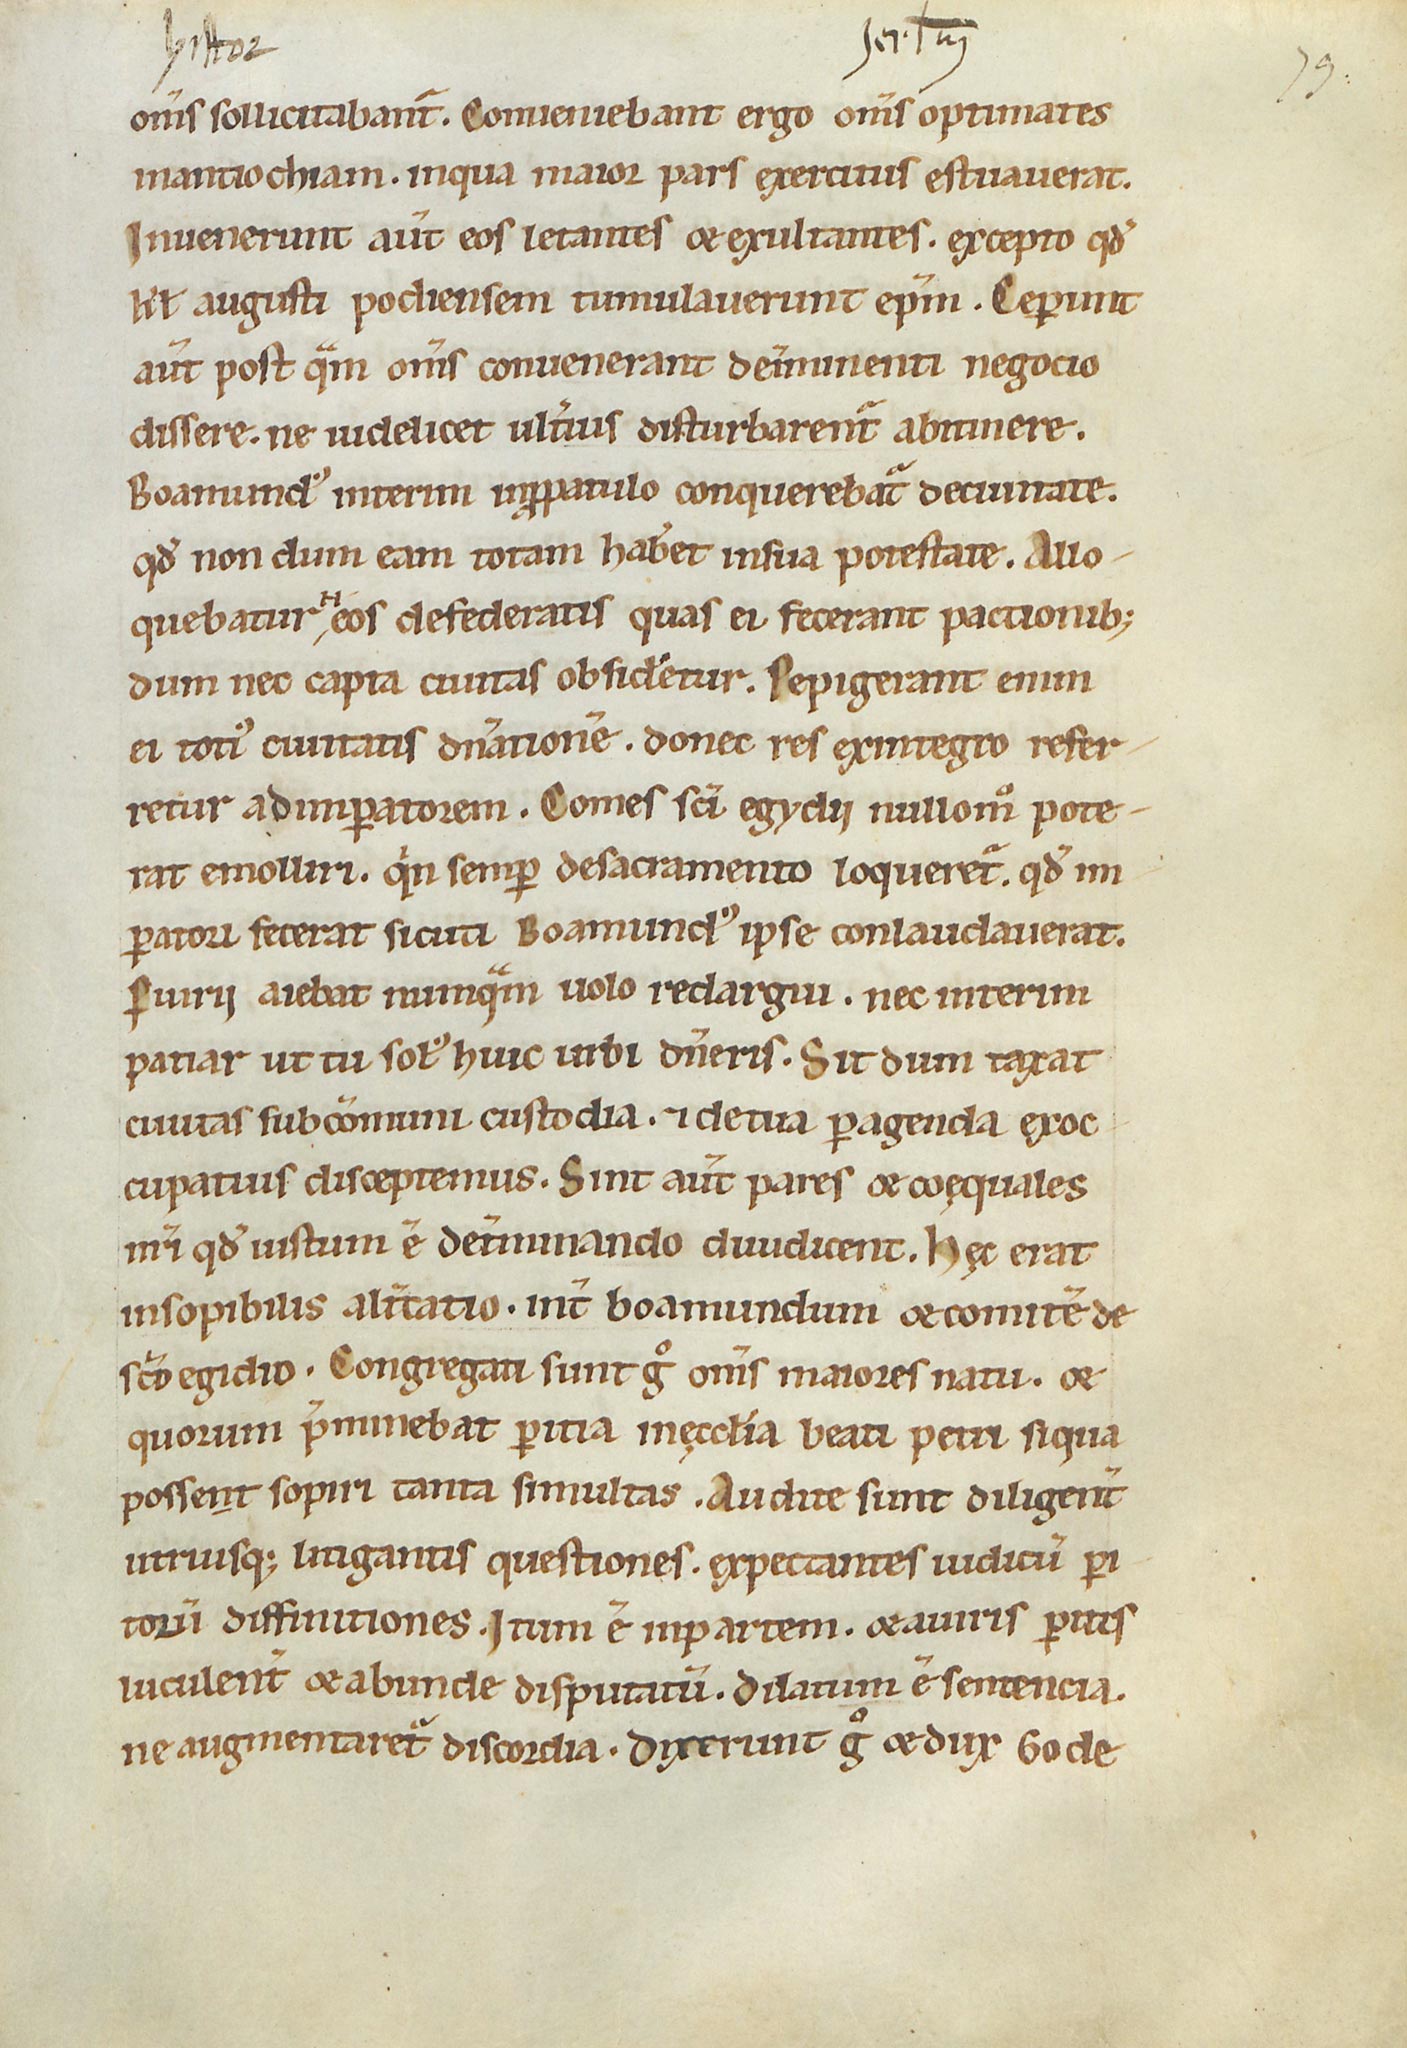 histor
79.
om̄s sollicitabant᷑. Conueniebant ergo om̄s optimates
inantiochiam. inqua maior pars exercitus estuauerat.
Inuenerunt aūt eos letantes & exultantes. excepto qđ
kł augusti podiensem tumulauerunt ep̄m. Ceꝑunt
aūt post qᵃm om̄s conuenerant deīminenti negocio
dissere. ne uidelicet ult̄ius disturbarent᷑ abitinere.
Boamundꝰ interim inꝓpatulo conquerebat᷑ deciuitate.
qđ non dum eam totam hab̄et insua potestate. Allo-
quebatur H̵ eos defederatis quas ei fecerant pactionib;
dum nec capta ciuitas obsid̄etur. Pepigerant enim
ei totiꝰ ciuitatis dn̄ationē. donec res exintegro refer-
retur adimꝑatorem. Comes sc̄i egydij nullom̊ pote-
rat emolliri. qⁱn semꝑ desacramento loqueret᷑. qđ im
ꝑatori fecerat sicuti Boamundꝰ ipse conlaudauerat.
Ꝑiurij aiebat numqᵃm uolo redargui. nec interim
patiar ut tu solꝰ huic urbi dn̄eris. Sit dum taxat
ciuitas subcōmuni custodia. ⁊ detua ꝑagenda exoc
cupatius disceptemus. Sint aūt pares & coęquales
nr̄i qđ iustum ē det̄minando diiudicent. Hęc erat
insopibilis alt̄catio. int̄ boamundum & comitē de
sc̄o egidio. Congregati sunt g̊ om̄s maiores natu. &
quorum p̄minebat ꝑitia inęcclīa beati petri siqua
possent sopiri tanta simultas. Audite sunt diligent̄
utriusq; litigantis questiones. expectantes iudicū ꝑi
torū diffinitiones. Itum ē inpartem. & auiris ꝑitis
luculent̄ & abunde disputatū. Dilatum ē sentencia.
ne augmentaret᷑ discordia. Dixerunt g̊ & dux Gode